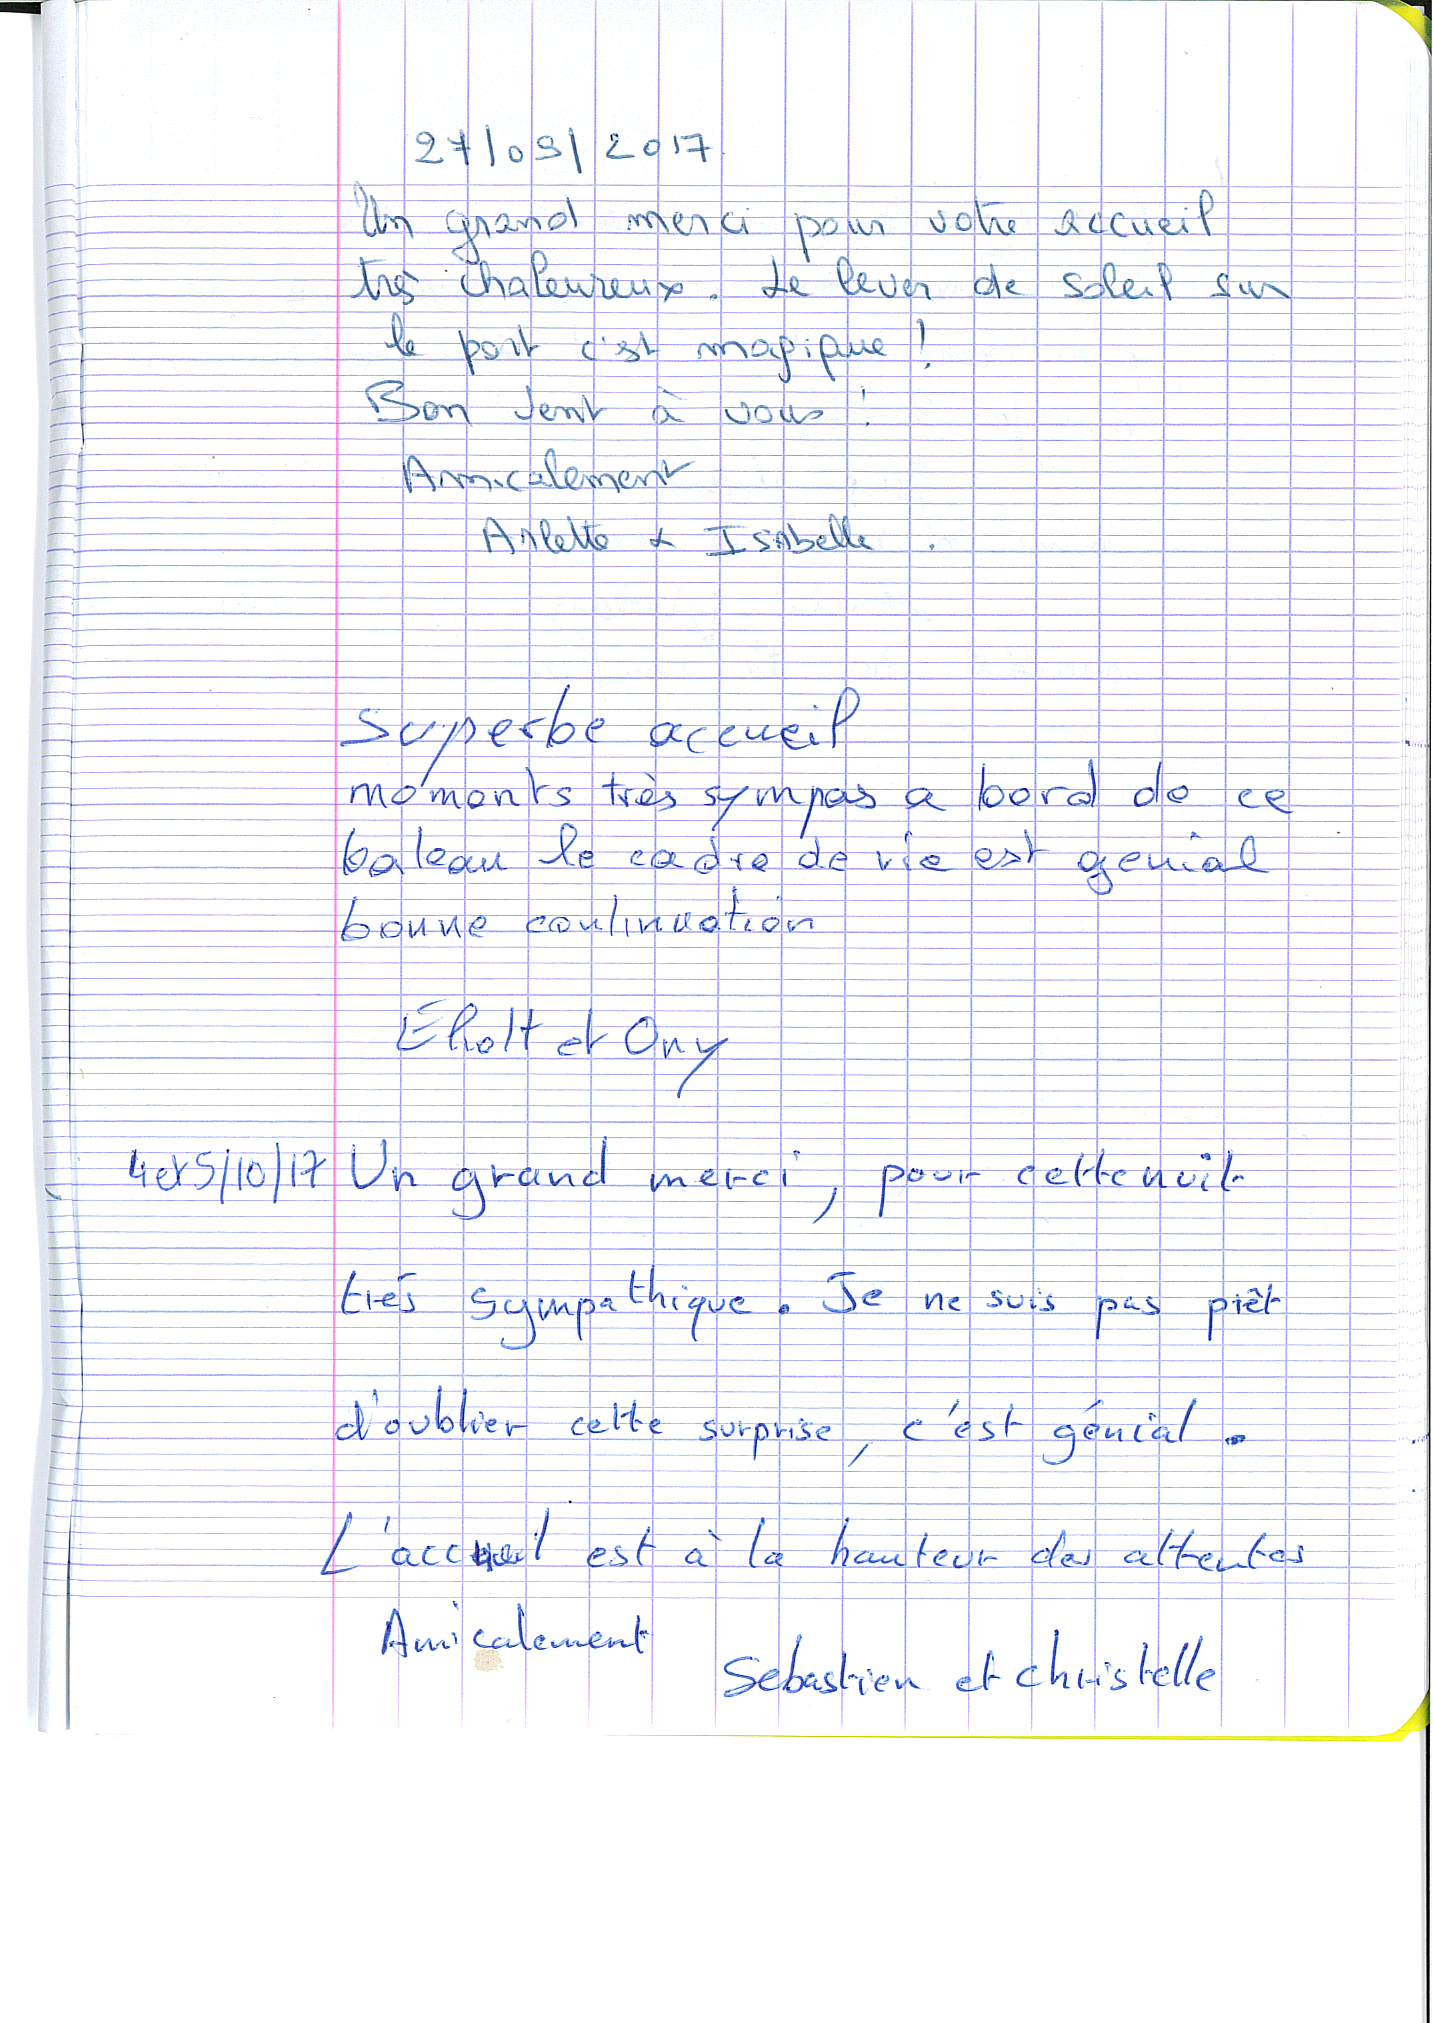 27/09/2017
Un grand merci pour votre accueil
très chaleureux. Le lever de soleil sur
le port c'est magique !
Bon vent à vous !
Amicalement
Arlette & Isabelle.
Superbe accueil
moments très sympas a bord de ce
bateau le cadre de vie est genial
bonne continuation
et Ony
4et5/10/17 Un grand merci, pour cette nuit
très sympathique. Je ne suis pas prêt
d'oublier cette surprise, c'est génial.
L'accueil est à la hauteur des attentes
Amicalement
Sebastien et christelle